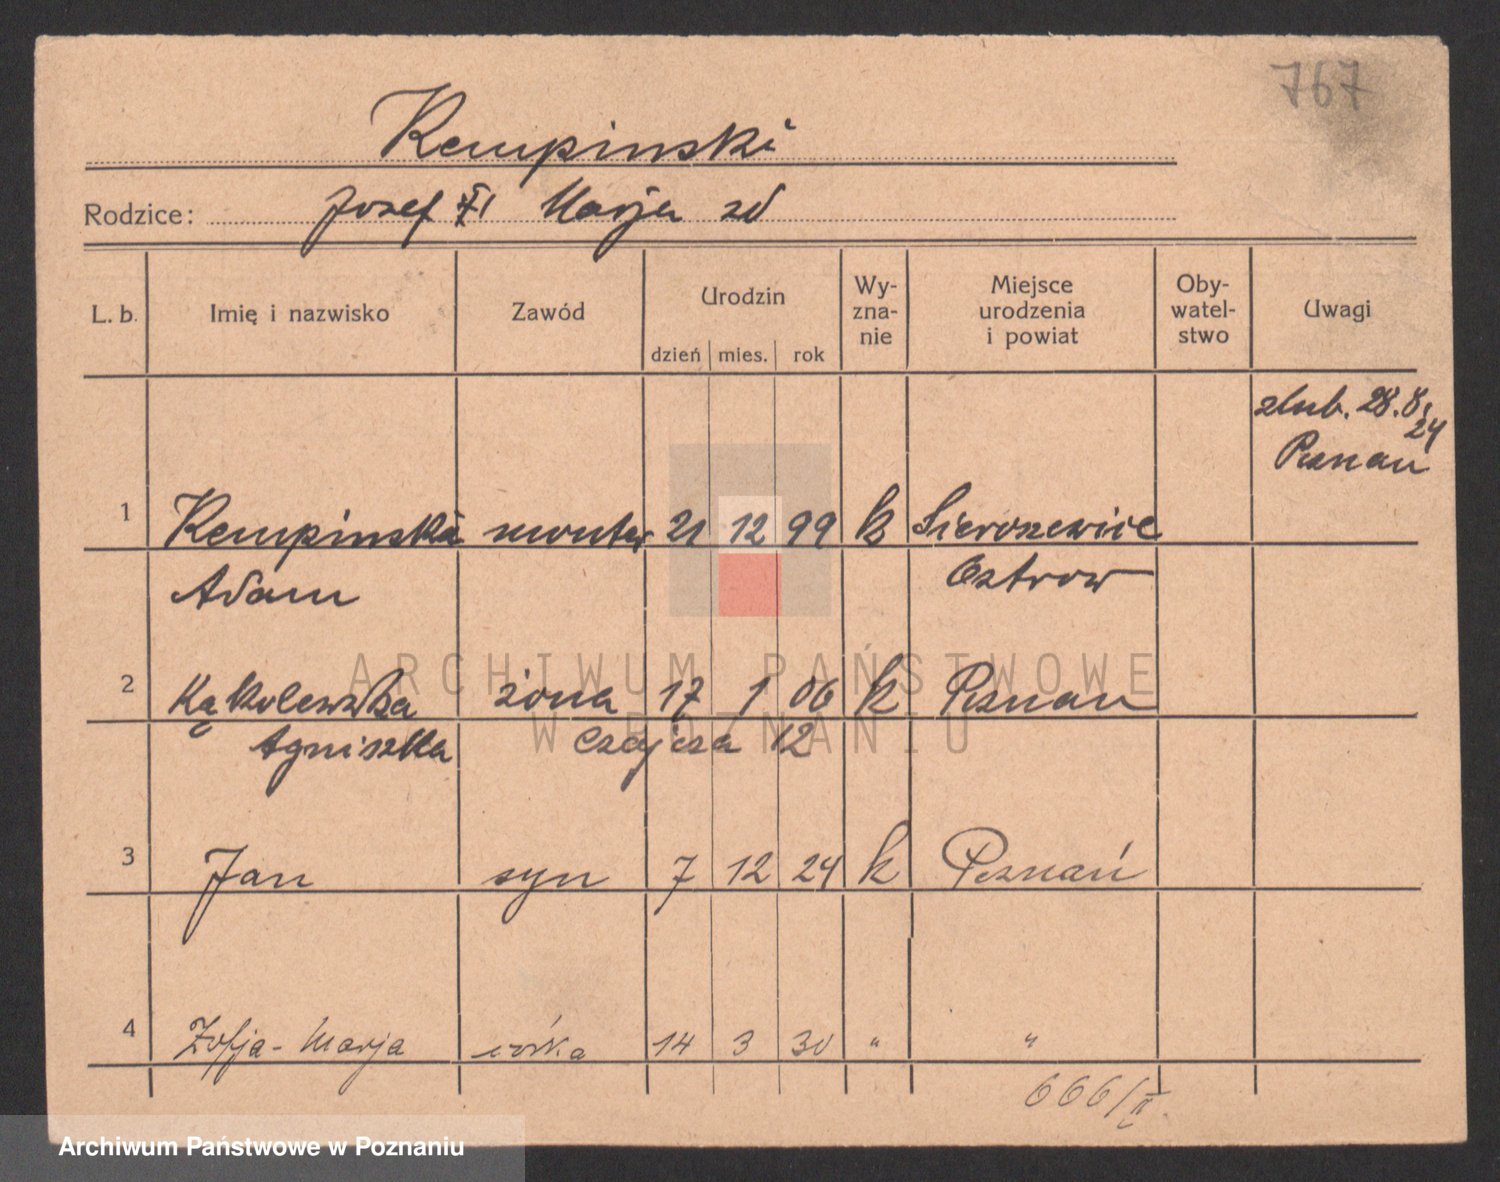 767
Kempinski
Rodzice: Josef Marja
L. b. Imię i nazwisko Zawód Urodzin dzień mies. rok Wy-zna-nie Miejsce urodzenia i powiat Oby-watel-stwo Uwagi
ślub. 28.8.24
Poznań
1 Kempinski monter 21 12 99 k Sieroszewice
Adam Ostrow
2 Kąkolewska żona 17 1 06 k Poznań
Agniszka 12
3 Jan syn 7 12 24 k Poznań
4 Zofja-Marja córka 14 3 30 " "
666/II.
ARCHIWUM PAŃSTWOWE
W POZNANIU
Archiwum Państwowe w Poznaniu